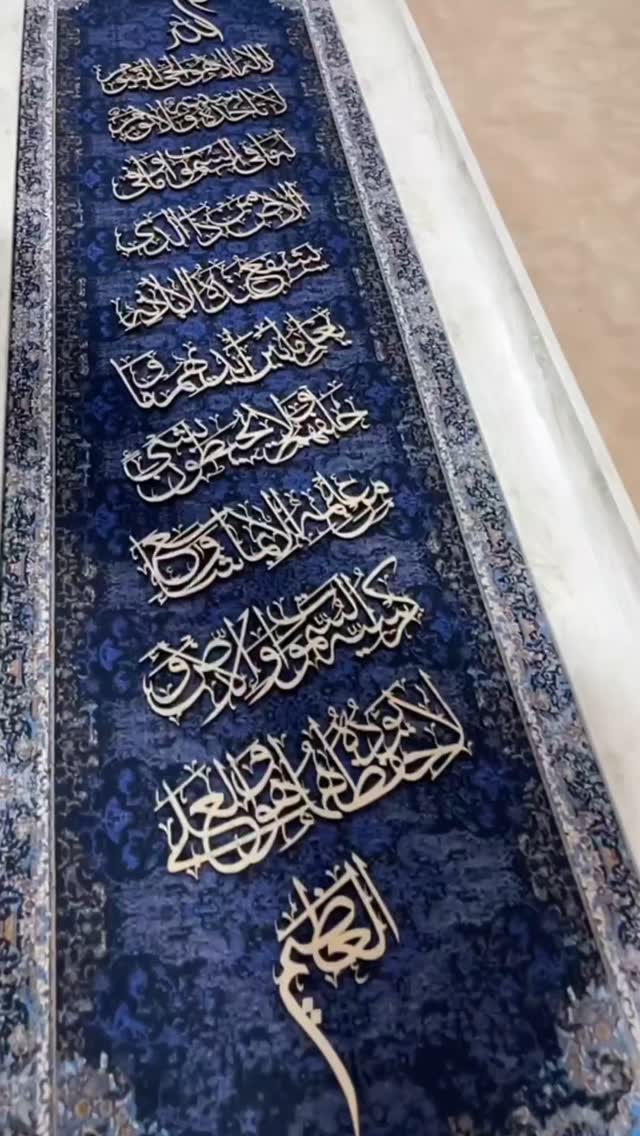 الله
لا اله الا هو الحي القيوم
لا تاخذه سنة ولا نوم
له ما في السموت وما في
الارض من ذا الذي
يشفع عنده الا باذنه
يعلم ما بين ايديهم وما
خلفهم ولا يحيطون بشيء
من علمه الا بما شاء وسع
كرسيه السموات والارض و
لا يوده حفظهما وهو العلي
العظيم